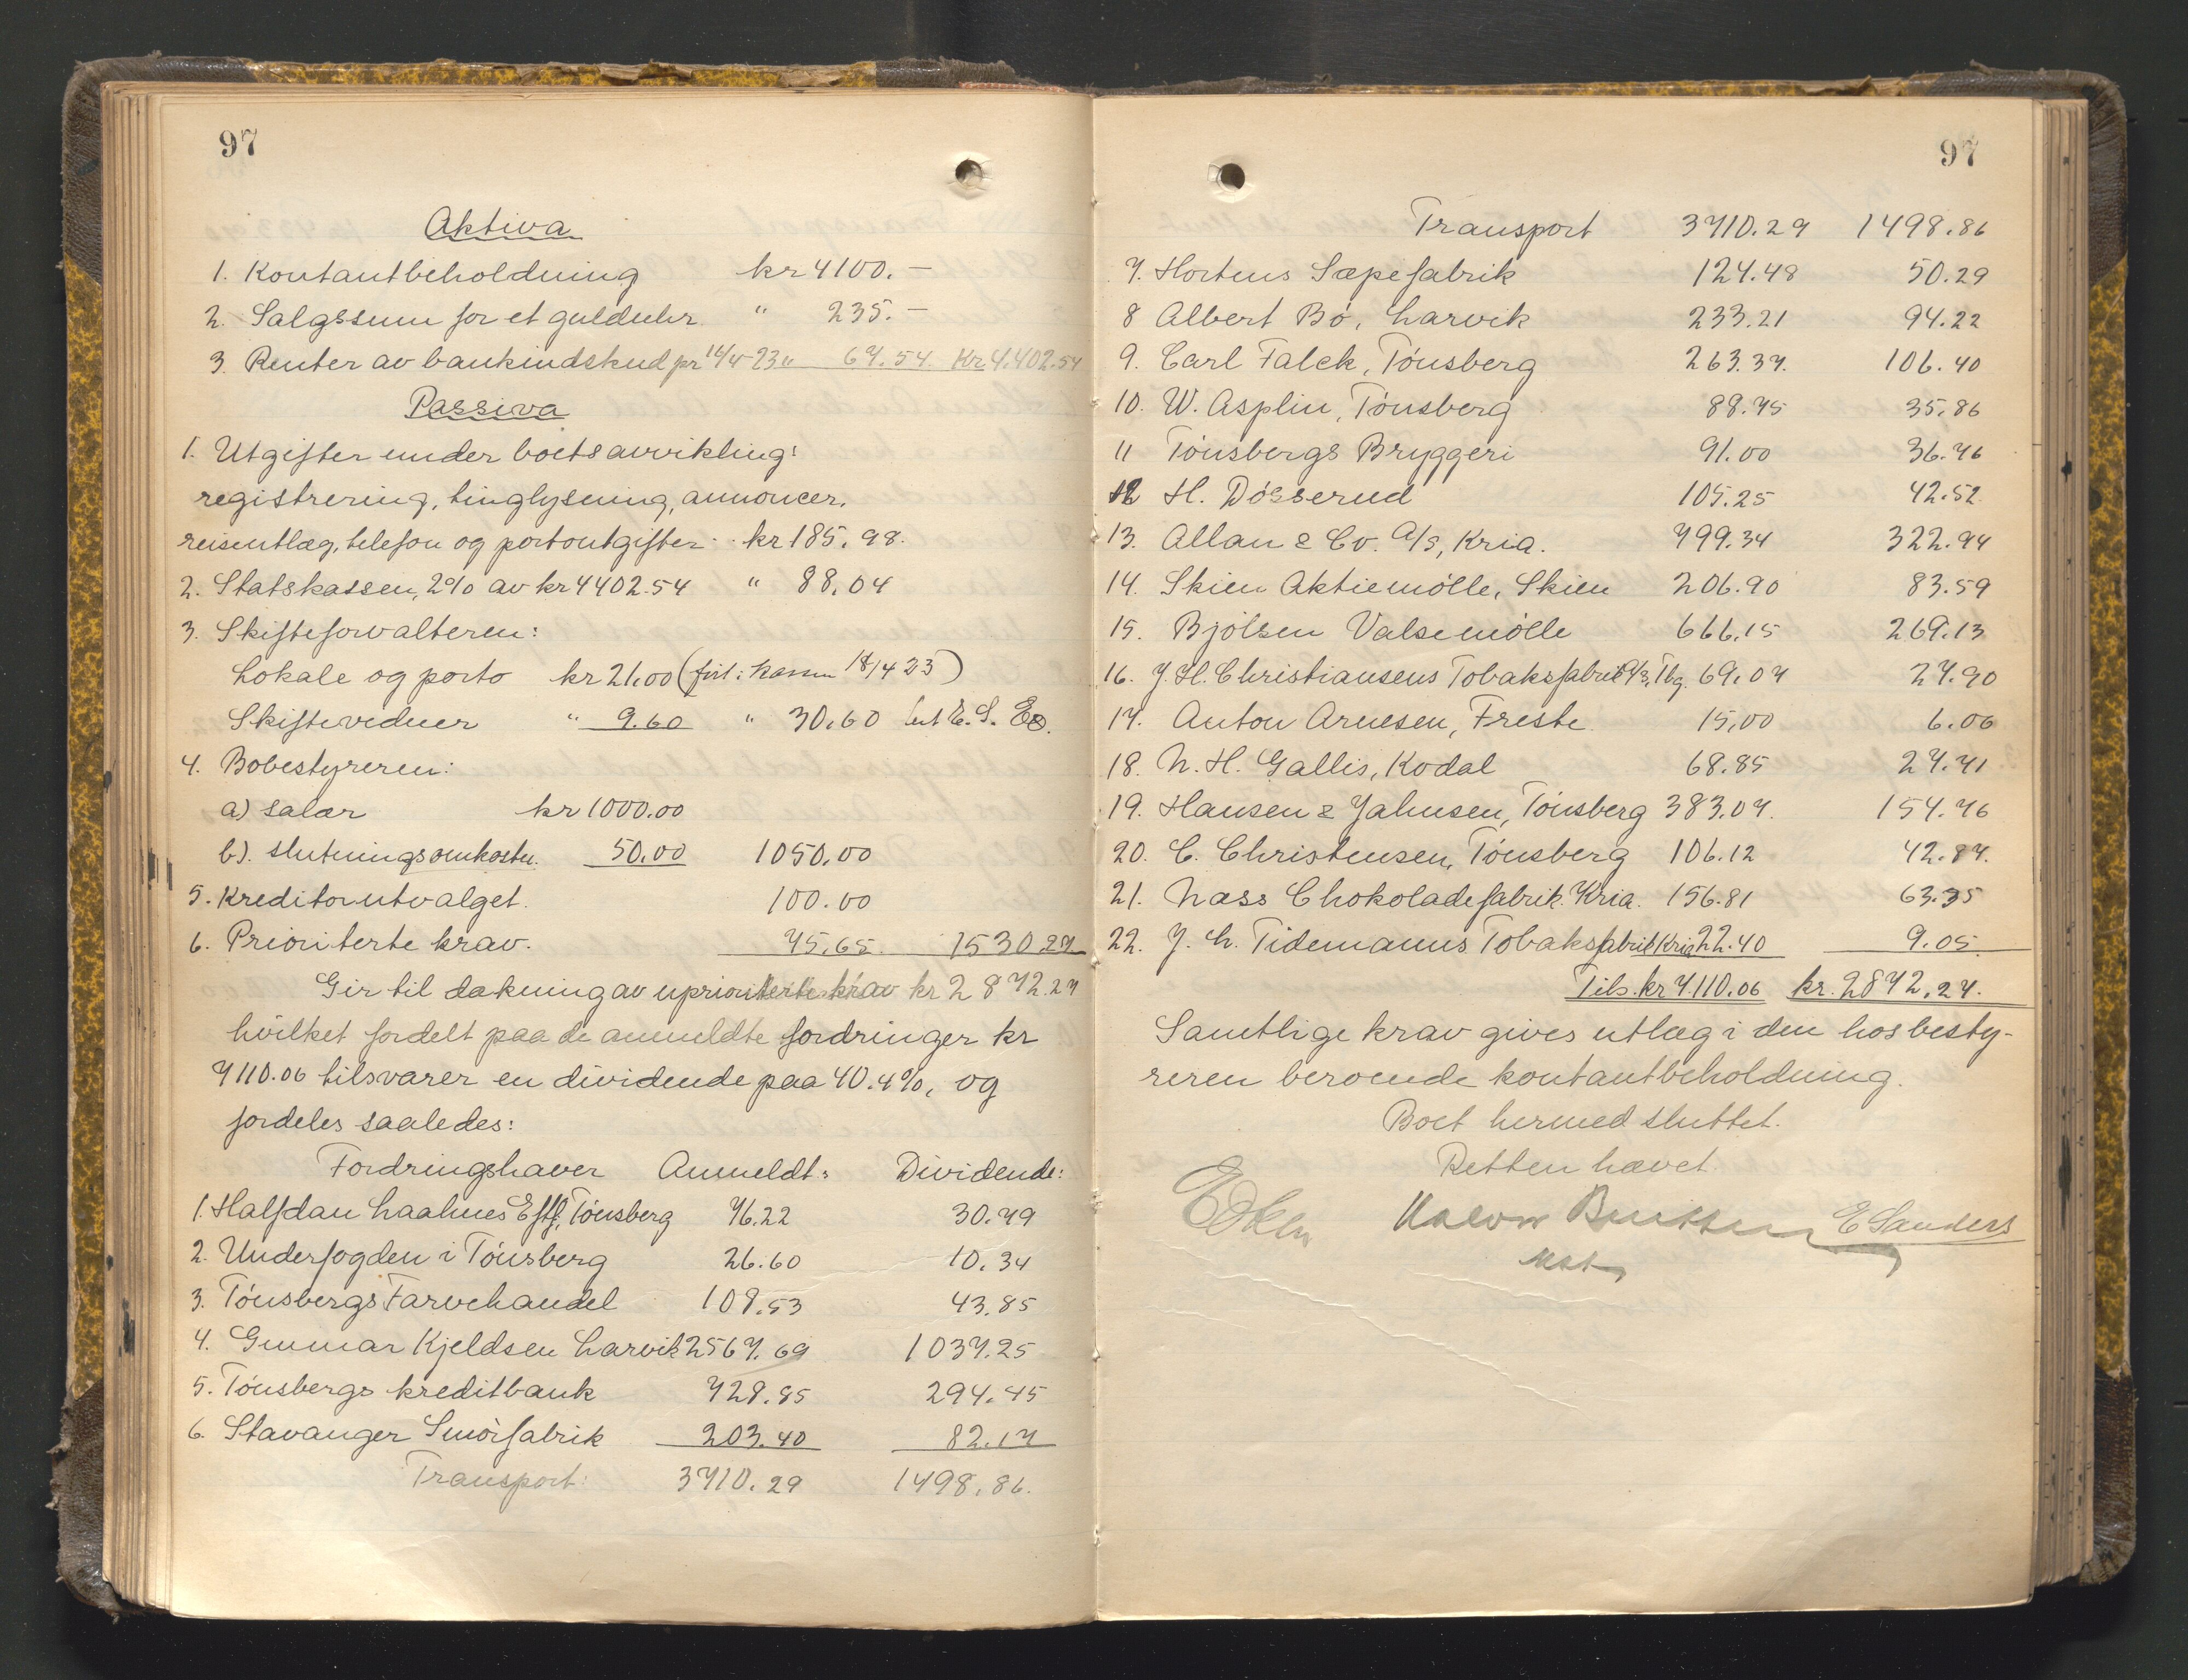 97
Aktiva
1. Kontantbeholdning kr 4100.–
2. Salgssum for et gulduhr " 235.–
3. Renter av bankindskud pr 14/4-23 " 67.54 Kr 4.402.54
Passiva
1. Utgifter under boets avvikling:
registrering, tinglysning, annoncer,
reiseutlæg, telefon og portoutgifter kr 185.98.
2. Statskassen, 2% av kr 4402.54 " 88.04
3. Skifteforvalteren:
Lokale og porto kr 21.00 ( i kassen 18/4 23)
Skiftevidner " 9.60 " 30.60
4. Bobestyreren:
a) salær kr 1000.00
b). slutningsomkostn. 50.00 1050.00
5. Kreditorutvalget. 100.00
6. Prioriterte krav. 75.65 1530.27
Gir til dækning av uprioriterte krav kr 2872.27
hvilket fordelt paa de anmeldte fordringer kr
7110.06 tilsvarer en dividende paa 40.4%, og
fordeles saaledes:
Fordringshaver Anmeldt: Dividende:
1. Halfdan Laahnes Eftf, Tönsberg 76.22 30.79
2. Underfogden i Tönsberg 26.60 10.34
3. Tönsbergs Farvehandel 108.53 43.85
4. Gunnar Kjeldsen Larvik 2567.69 1037.25
5. Tönsbergs kreditbank 728.85 294.45
6. Stavanger Smörfabrik 203.40 82.17
Transport: 3710.29 1498.86.
97
Transport 3710.29 1498.86
7. Hortens Sæpefabrik 124.48 50.29
8 Albert Bö, Larvik 233.21 94.22
9. Carl Falck, Tönsberg 263.37. 106.40
10. W. Asplin, Tönsberg 88.75 35.86
11 Tönsbergs Bryggeri 91.00 36.76
12 H. Dösserud 105.25 42.52
13. Allan & Co. A/S, Kria. 799.34 322.94
14. Skien Aktiemölle, Skien 206.90 83.59
15. Bjölsen Valsemölle 666.15 269.13
16. J. H. Christiansens Tobaksfabrik A/S, Tbg. 69.07 27.90
17. Anton Arnesen, Freste 15.00 6.06
18. N. H. Gallis, Kodal 68.85 27.71
19. Hansen & Jahnsen, Tönsberg 383.07. 154.76
20. C. Christensen, Tönsberg 106.12 42.87.
21. Næss Chokoladefabrik Kria. 156.81 63.35
22. J. L. Tidemanns Tobaksfabrik Kria 22.40 9.05
Tils. kr 7110.06 kr. 2872.27.
Samtlige krav gives utlæg i den hos besty-
reren beroende kontantbeholdning.
Boet hermed sluttet.
Retten hævet.
E Sanders